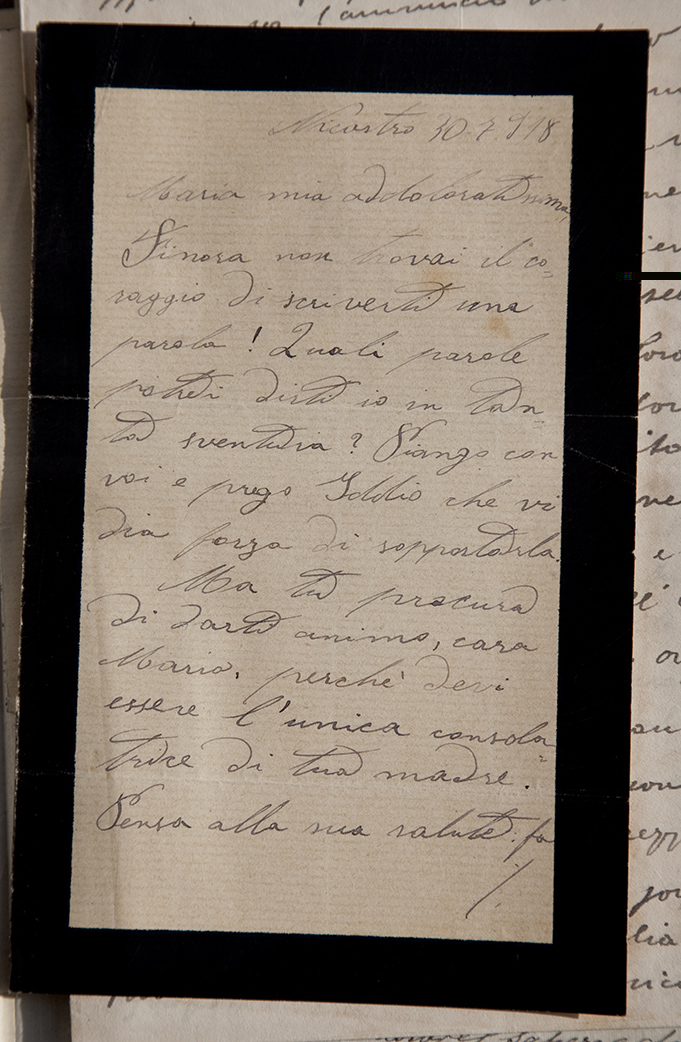 Nicastro 30-7 918
Maria mia addoloratissima,
Finora non trovai il co=
raggio di scriverti una
parola! Quali parole
potrei dirti io in tan
ta sventura? Piango con
voi e prego Iddio che vi
dia forza di sopportarla.
Ma tu procura
di darti animo, cara
Maria, perchè devi
essere l'unica consola=
trice di tua madre.
Pensa alla sua salute. fa
/.